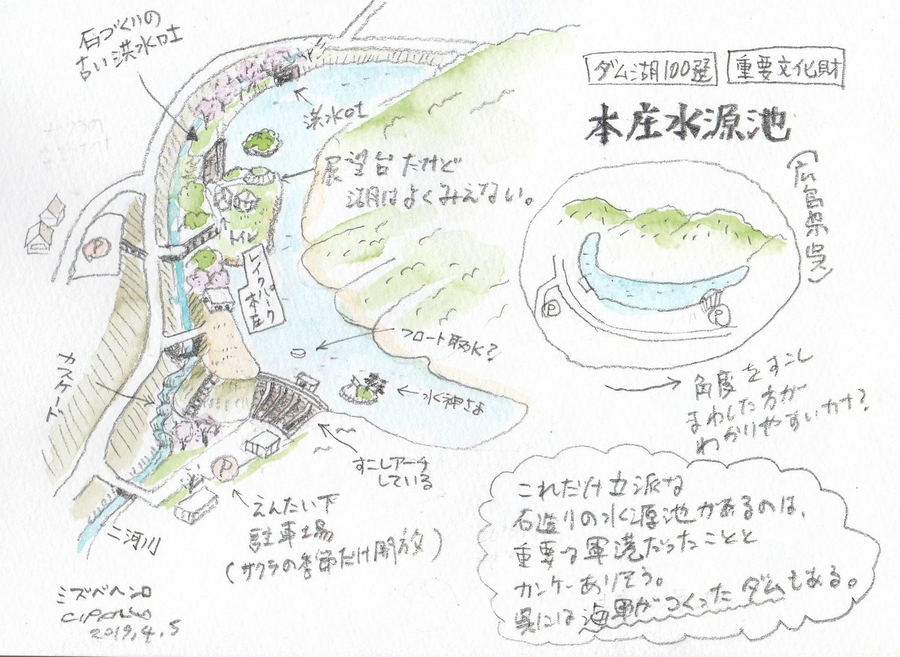 石づくりの
古い洪水吐
洪水吐
展望台だけど
湖はよくみえない。
トイレ
レイクパーク
本庄
フロート取水?
水神さま
カスケード
すこしアーチ
している
P
P
えんてい下
駐車場
(サクラの季節だけ開放)
二河川
ミズベヘンロ
2019.4.5
ダム湖100選
重要文化財
本庄水源池
(広島県呉)
P
P
角度をすこし
まわした方が
わかりやすいカナ?
これだけ立派な
石造りの水源池があるのは、
重要な軍港だったことと
カンケーありそう。
呉には海軍がつくったダムもある。